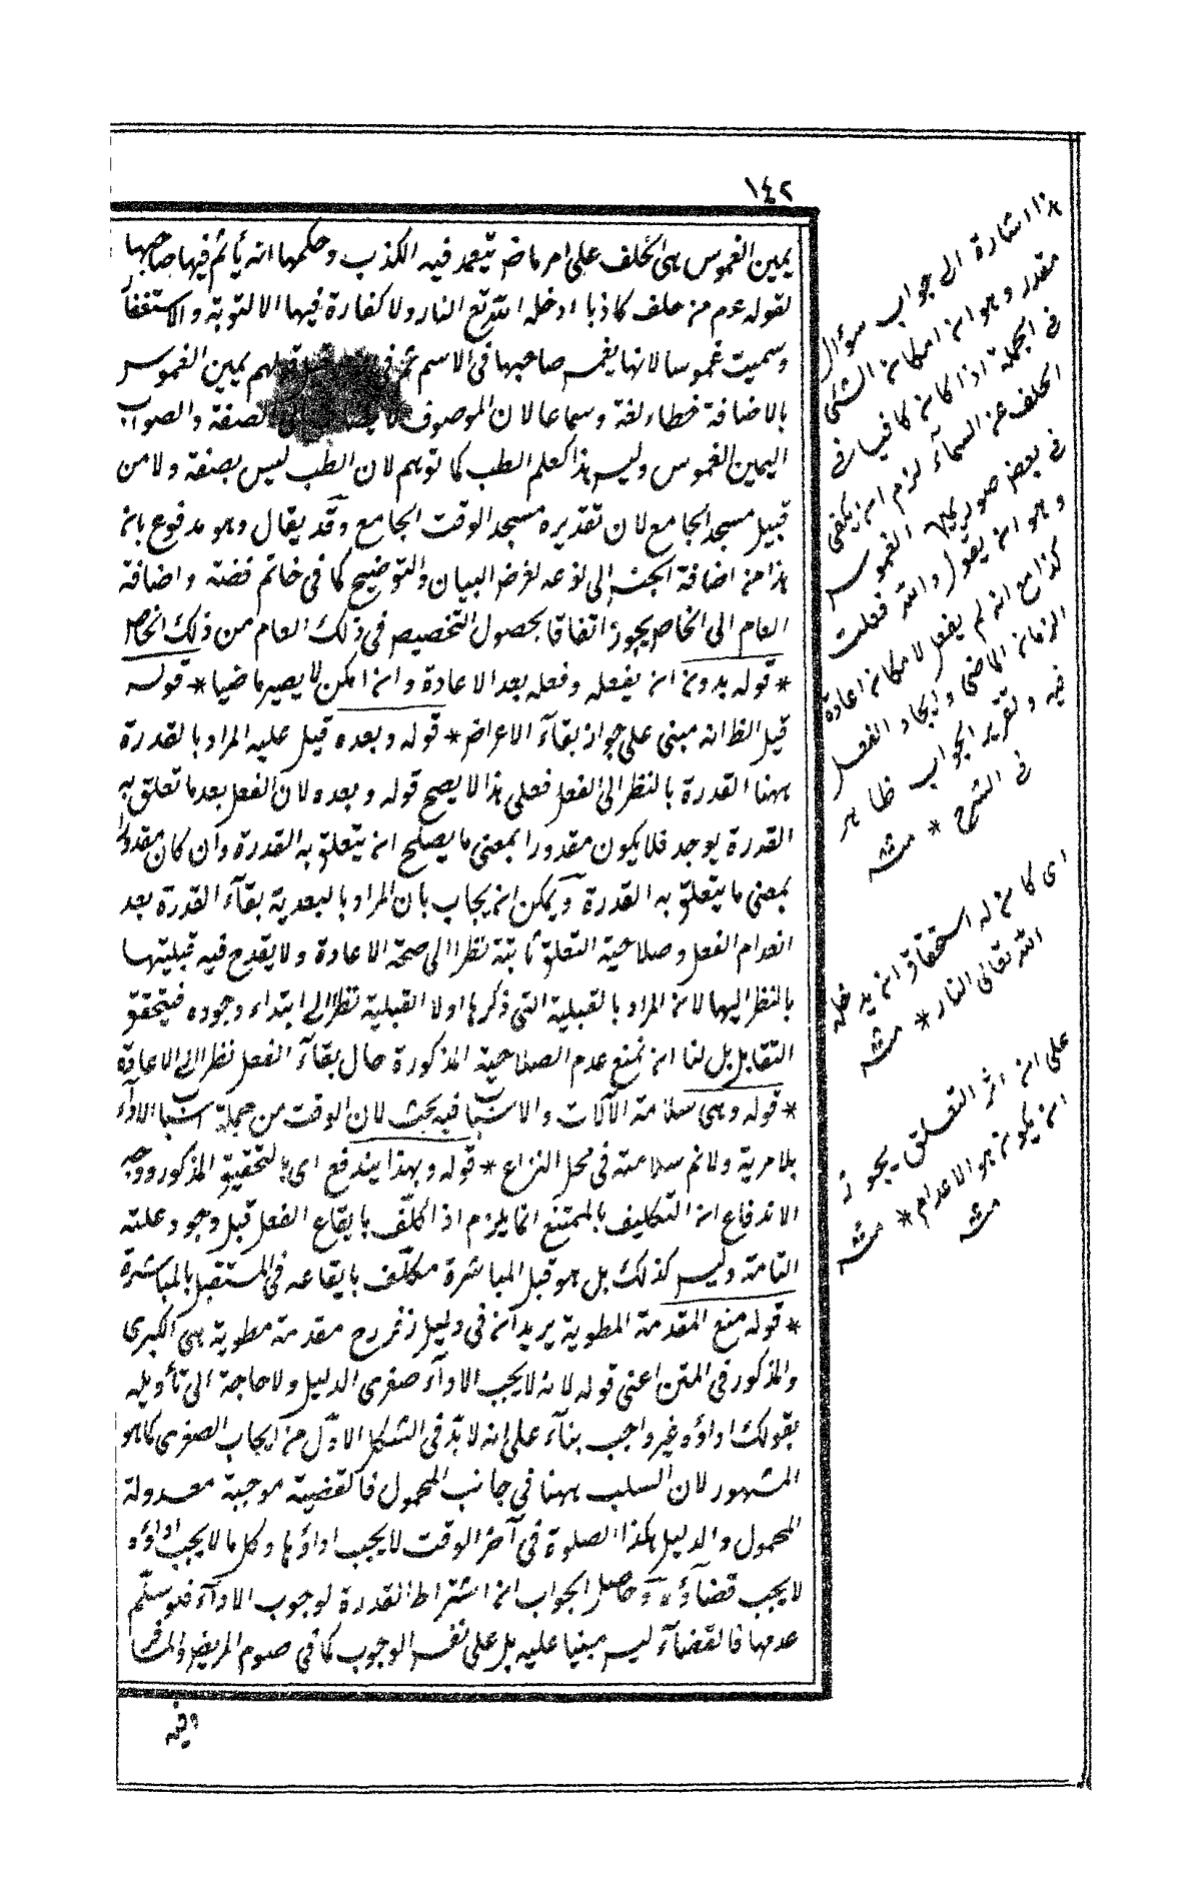 ١٤٢
يمين الغموس هى الحلف على امر ماض يتعمد فيه الكذب وحكمها انه يأثم فيها صاحبها
لقوله عم من حلف كاذبا ادخله الله تع النار ولا كفارة فيها الا التوبة والاستغفا
وسميت غموسا لانها يغمس صاحبها فى الاسم ثم فى قولهم يمين الغموس
بالاضافة خطاء لغة وسماعا لان الموصوف لا يضاف الى الصفة والصواب
اليمين الغموس وليس هذا كعلم الطب كما توهم لان الطب ليس بصفة ولا من
قبيل مسجد الجامع لان تقديره مسجد الوقت الجامع وقد يقال وهو مدفوع بان
هذا من اضافة الجنس الى نوعه لغرض البيان والتوضيح كما فى خاتم فضة واضافة
العام الى الخاص يجوز اتفاقا بحصول التخصيص فى ذلك العام من ذلك الخاص
* قوله بدون ان يفعله وفعله بعد الاعادة وان امكن لا يصير ماضيا * قوله
قيل الظ انه مبنى على جواز بقآء الاعراض * قوله وبعده قيل عليه المراد بالقدرة
ههنا القدرة بالنظر الى الفعل فعلى هذا لا يصح قوله وبعده لان الفعل بعد ما تعلق به
القدرة يوجد فلا يكون مقدورا بمعنى ما يصلح ان يتعلق به القدرة وان كان مقدورا
بمعنى ما يتعلق به القدرة ويمكن ان يجاب بان المراد بالبعدية بقآء القدرة بعد
انعدام الفعل وصلاحية التعلق ثابتة نظرا الى صحة الاعادة ولا يقدح فيه قبليتها
بالنظر اليها لان المراد بالقبلية التى ذكرها اولا القبلية نظرا الى ابتداء وجوده فيتحقق
التقابل بل لنا ان نمنع عدم الصلاحية المذكورة حال بقآء الفعل نظرا الى الاعادة
* قوله وهى سلامة الآلات والاسباب فيه بحث لان الوقت من جملة اسباب الادآء
بلا مرية ولا نم سلامته فى محل النزاع * قوله وبهذا يندفع اى بالتحقيق المذكور ووجه
الاندفاع ان التكليف بالممتنع انما يلزم اذا كلف بايقاع الفعل قبل وجود علته
التامة وليس كذلك بل هو قبل المباشرة مكلف بايقاعه فى المستقبل بالمباشرة
* قوله منع المقدمة المطوية يريد ان فى دليل زفر رح مقدمة مطوية هى الكبرى
والمذكور فى المتن اعنى قوله لانه لا يجب الادآء صغرى الدليل ولا حاجة الى تأويله
بقولك اداؤه غير واجب بنآء على انه لا بد فى الشكل الاول من ايجاب الصغرى كما هو
المشهور لان السلب ههنا فى جانب المحمول فالقضية موجبة معدولة
المحمول والدليل هكذا الصلوة فى آخر الوقت لا يجب اداؤها وكل ما لا يجب اداؤه
لا يجب قضاؤه وحاصل الجواب ان اشتراط القدرة لوجوب الادآء فلو سلم
عدمها فالقضآء ليس مبنيا عليه بل على نفس الوجوب كما فى صوم المريض والمسافر
وفيه
هذا اشارة الى جواب سؤال
مقدر وهو ان امكان الشئ
فى الجملة اذا كان كافيا فى
الحلف عن السمآء لزم ان يكفى
فى بعض صور يمين الغموس
وهو ان يقول والله فعلت
كذا مع انه لم يفعل لامكان اعادة
الزمان الماضى وايجاد الفعل
فيه وتقرير الجواب ظاهر
فى الشرح * منه
اى كان له استحقاق ان يدخله
الله تعالى النار * منه
على ان اثر التعلق يجوز
ان يكون هو الاعدام * منه
منه